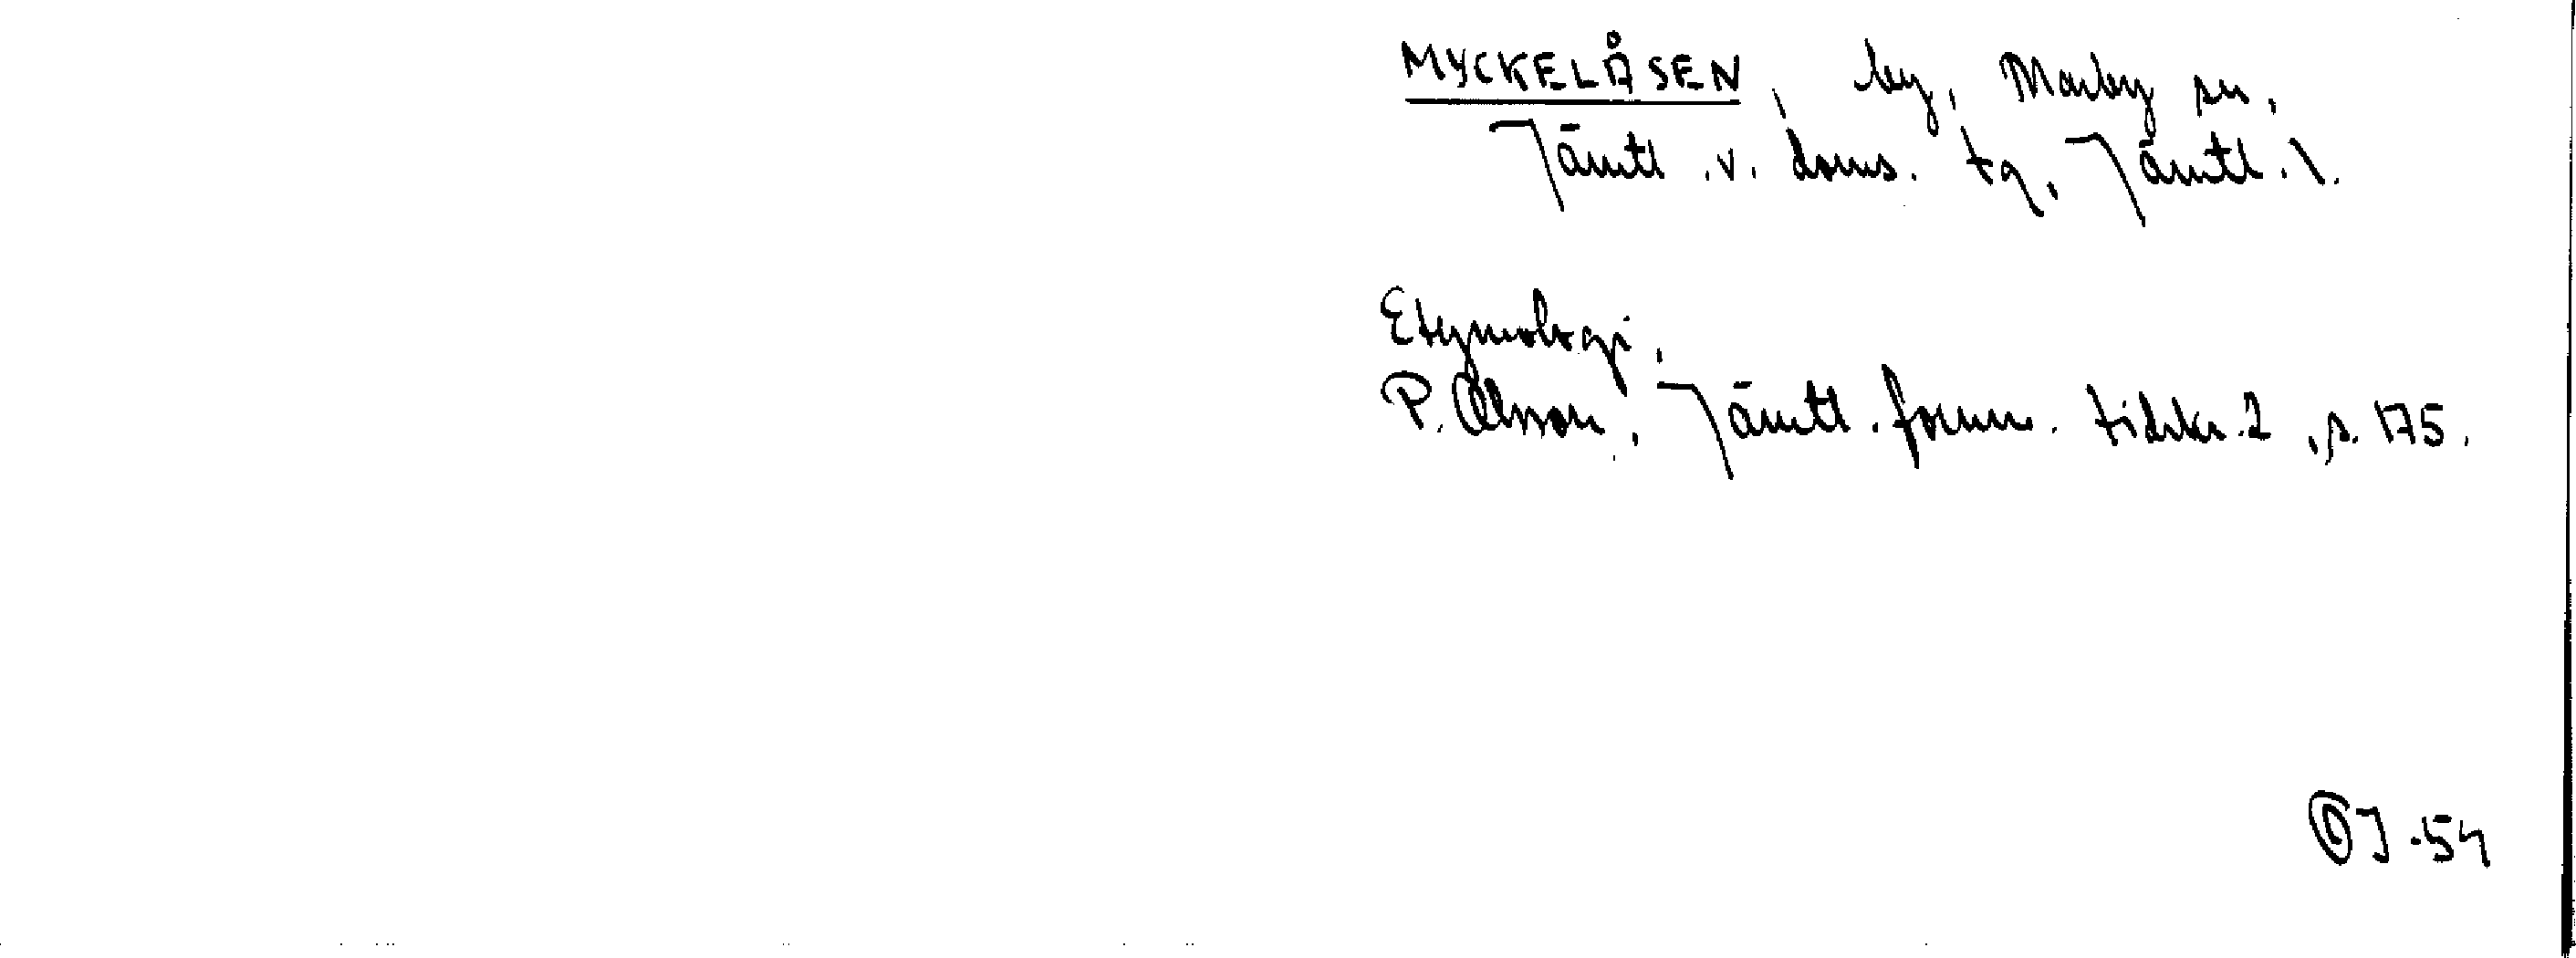 MYCKELÅSEN, by, Marby sn,
Jämtl. v. doms. tg, Jämtl. l.
Etymologi.
P. Olsson, Jämtl. fornm. tidskr. 2, s. 175.
OJ -54